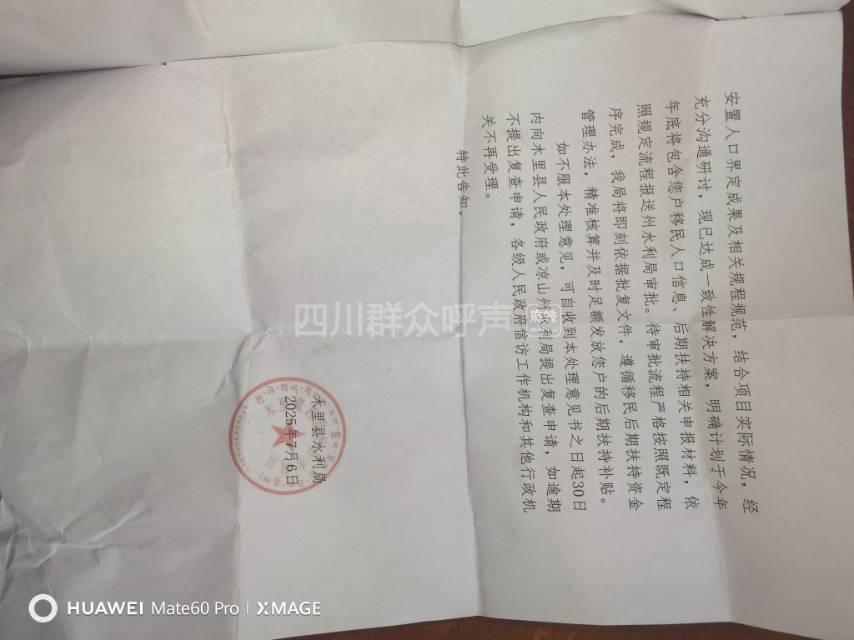 安置人口界定成果及相关规程规范，结合项目实际情况，经
充分沟通研讨，现已达成一致性解决方案，明确计划于今年
年底将包含您户移民人口信息、后期扶持相关申报材料，依
照规定流程报送州水利局审批。待审批流程严格按照既定程
序完成，我局将即刻依据批复文件，遵循移民后期扶持资金
管理办法，精准核算并及时足额发放您户的后期扶持补贴。
如不服本处理意见，可自收到本处理意见书之日起30日
内向木里县人民政府或凉山州水利局提出复查申请，如逾期
不提出复查申请，各级人民政府信访工作机构和其他行政机
关不再受理。
特此告知。
木里县水利局
2025年7月6日
四川群众呼声
HUAWEI Mate60 Pro | XMAGE